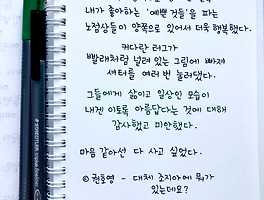 내가 좋아하는 '예쁜 것들'을 파는
노점상들이 양쪽으로 있어서 더욱 행복했다.
커다란 러그가
빨래처럼 널려 있는 그림에 빠져
셔터를 여러 번 눌러댔다.
그들에게 삶이고 일상인 모습이
내겐 이토록 아름답다는 것에 대해
감사했고 미안했다.
마음 같아선 다 사고 싶었다.
© 권호영 - 대체 조지아에 뭐가
있는데요?
STAEDTLER